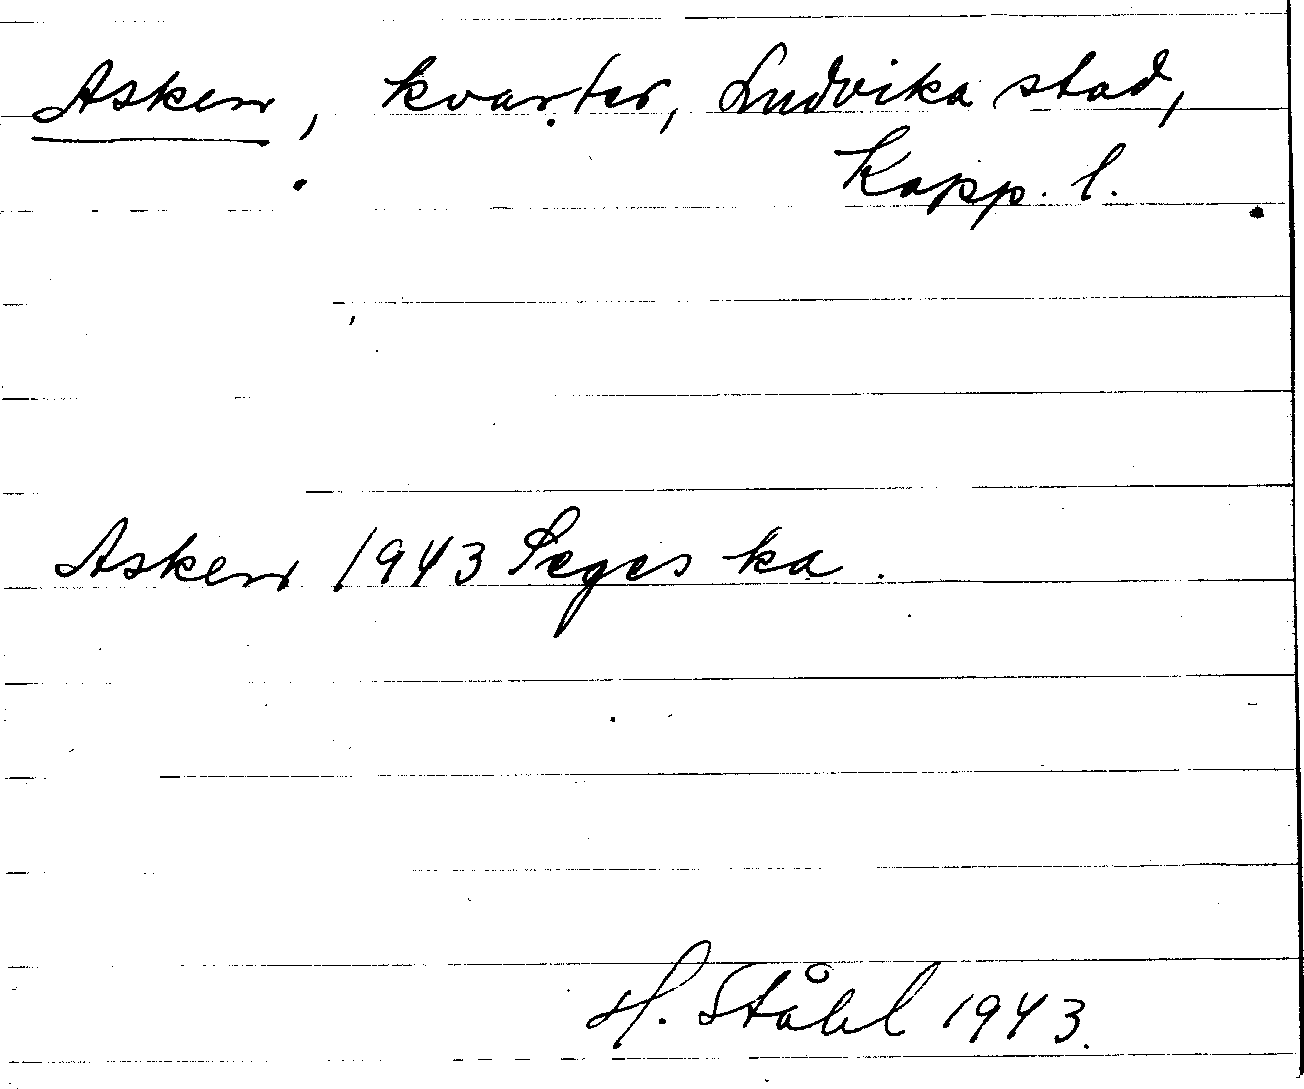 Asken, kvarter, Ludvika stad,
Kopp. l.
Asken 1943 Seges ka.
H. Ståhl 1943.